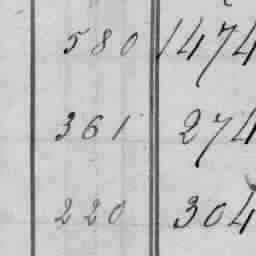 580 1474
361 274
220 304